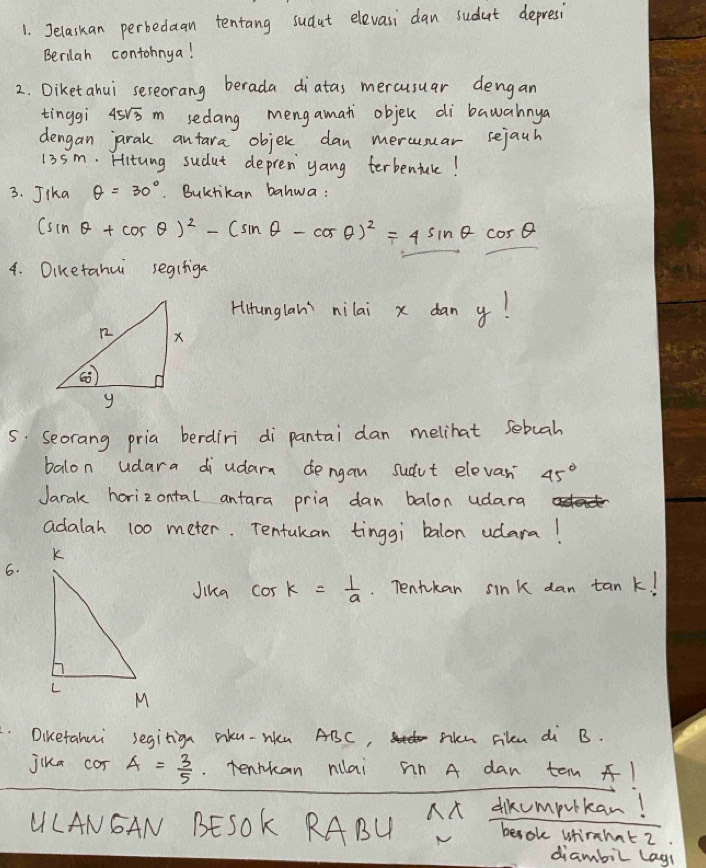 1. Jelaskan perbedaan tentang sudut elevasi dan sudut depresi
Berilah contohnya!
2. Diketahui seseorang berada diatas mercusuar dengan
tinggi 45√3 m sedang mengamati objek di bawahnya
dengan jarak antara objek dan mercusuar sejauh
135m. Hitung sudut depresi yang terbentuk!
3. Jika θ = 30°. Buktikan bahwa:
(sin θ + cos θ)² - (sin θ - cos θ)² = 4 sin θ cos θ
4. Diketahui segitiga
Hitunglah nilai x dan y!
12
x
60°
y
5. Seorang pria berdiri di pantai dan melihat sebuah
balon udara di udara dengan sudut elevasi 45°
Jarak horizontal antara pria dan balon udara
adalah 100 meter. Tentukan tinggi balon udara!
6.
K
Jika cos K = 1/a. Tentukan sin K dan tan K!
L
M
Diketahui segitiga siku-siku ABC, siku siku di B.
jika cos A = 3/5. Tentukan nilai sin A dan tan A!
ULANGAN BESOK RABU
dikumpulkan!
besok istirahat 2.
diambil lagi